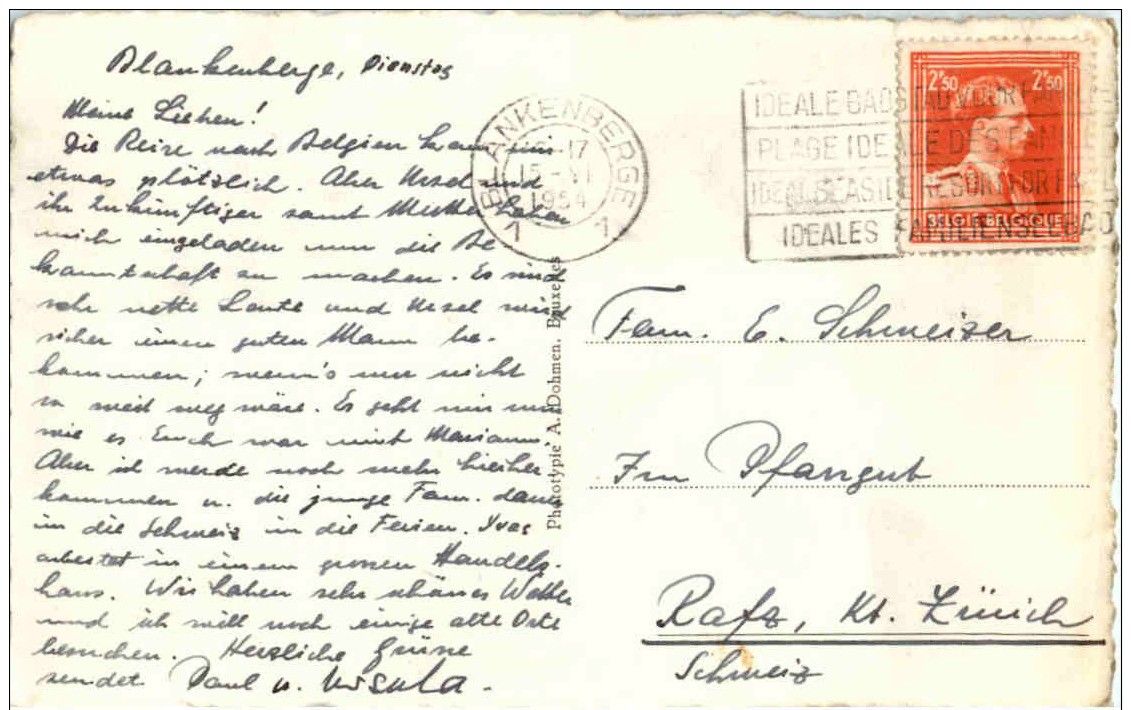 Blankenberge, Dienstag
Meine Lieben!
Die Reise nach Belgien kam uns
etwas plötzlich. Aber Ursel und
ihr Zukünftiger samt Mutter haben
mich eingeladen um die Be
kanntschaft zu machen. Es sind
sehr nette Leute und Ursel wird
sicher einen guten Mann be-
kommen; wenn's nur nicht
so weit weg wäre. Es geht mir nun
wie es Euch war mit Mariann.
Aber ich werde noch mehr hierher
kommen u. die junge Fam. dann
in die Schweiz in die Ferien. Yves
arbeitet in einem grossen Handels-
haus. Wir haben sehr schönes Wetter
und ich will noch einige alte Orte
besuchen. Herzliche Grüsse
sendet Paul u. Ursula.
Phototypie A. Dohmen, Bruxelles
BLANKENBERGE
-17
15 -VI
1954
1 1
IDEALE BADSTAD VOOR FAMILIE
PLAGE IDEALE DES FAMIL
IDEAL SEASIDE RESORT FOR FAMIL
IDEALES FAMILIENSEEBAD
2F50 2F50
BELGIE-BELGIQUE
Fam. E. Schweizer
Im Pfarrgut
Rafz, Kt. Zürich
Schweiz